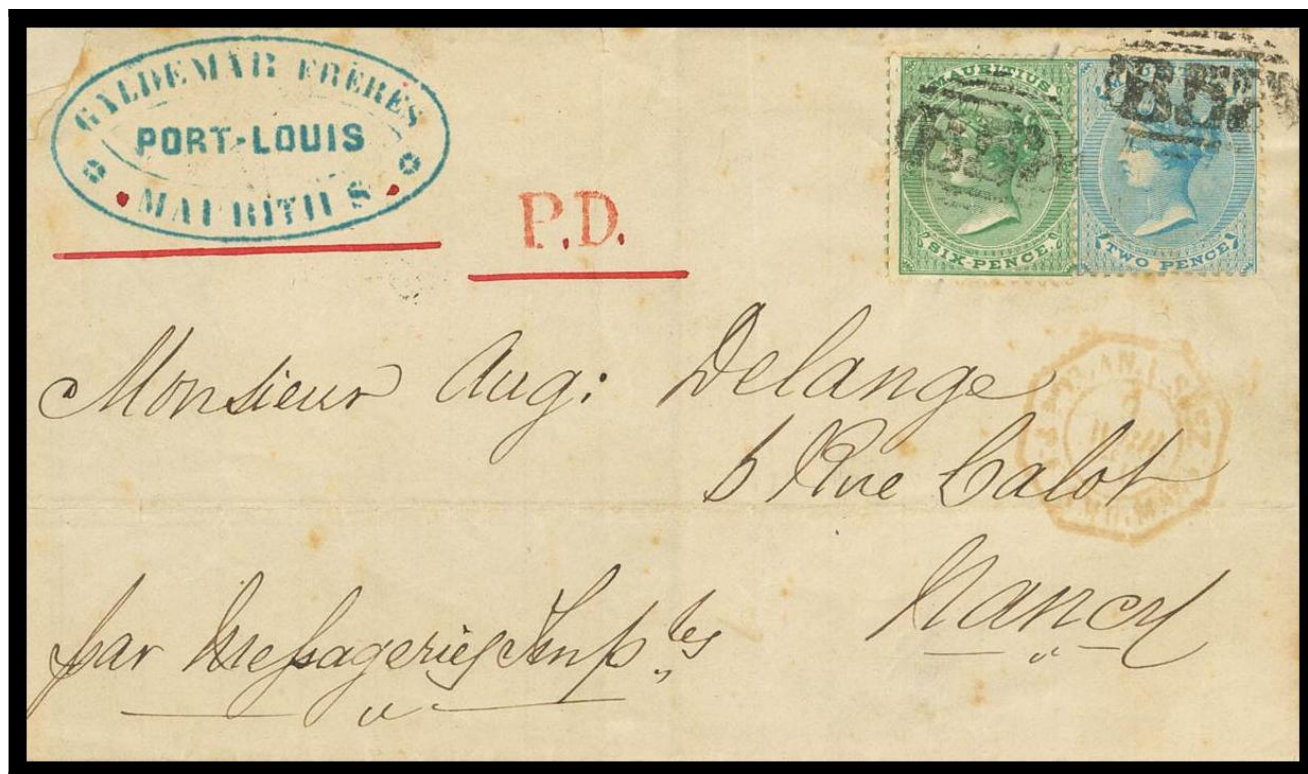 GALDEMAR FRERES
PORT-LOUIS
MAURITIUS
P.D.
MAURITIUS
SIX-PENCE
TWO PENCE
B53
Monsieur Aug: Delange
5 Rue Calot
Nancy
par Messageries Imp^les